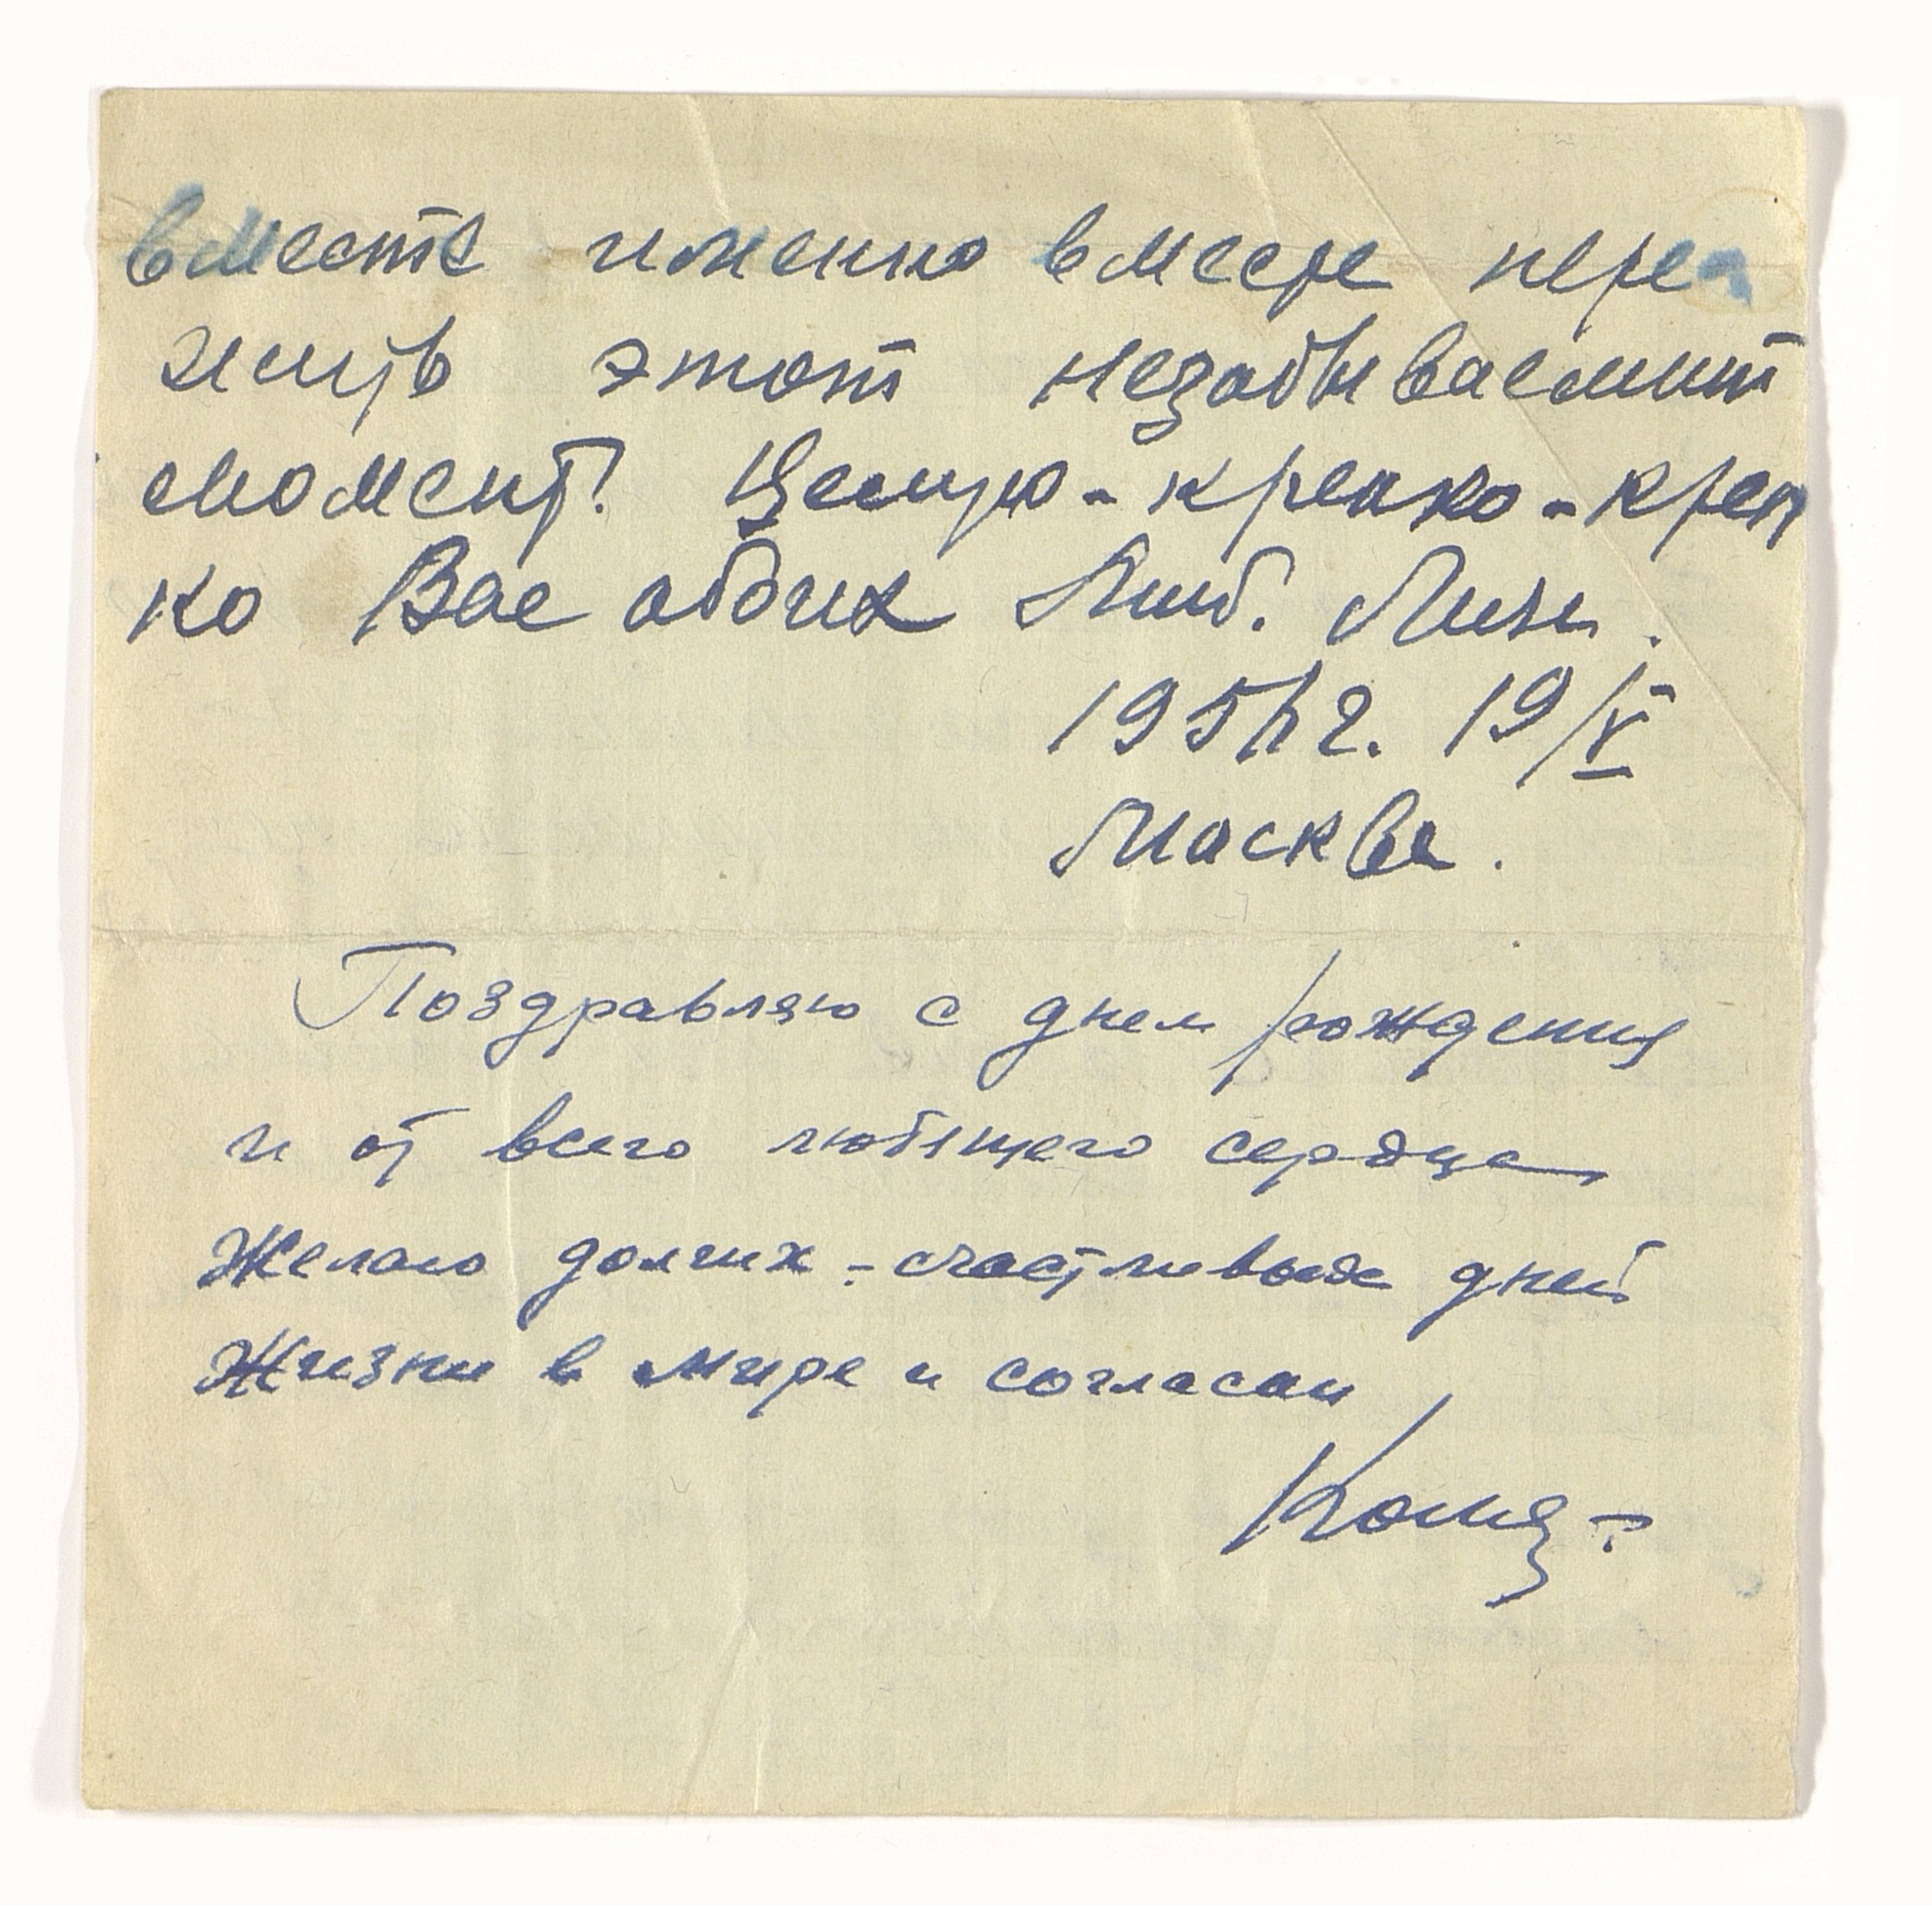 вместе именно вместе пере
жить этот незабываемый
момент! Целую-крепко-креп
ко Вас обоих Люб. Лиза.
19/V
Москва.
Поздравляю с днем рождения
и от всего любящего сердца
Желаю долгих-счастливых дней
Жизни в мире и согласии
Коля-